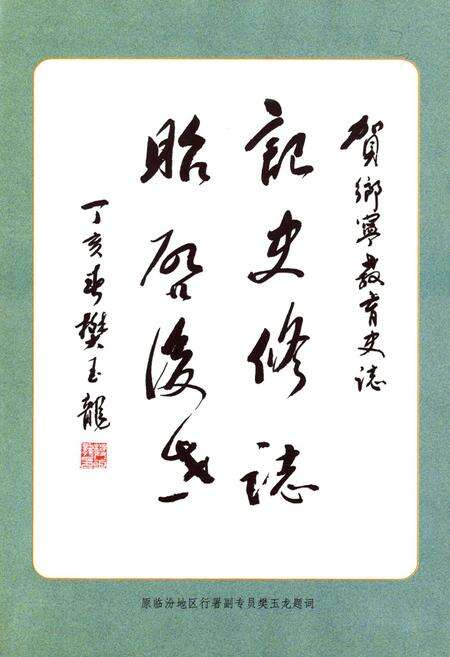 賀鄉寧教育史誌
記史修誌
貽啓後世
丁亥春樊玉龍
原临汾地区行署副专员樊玉龙题词